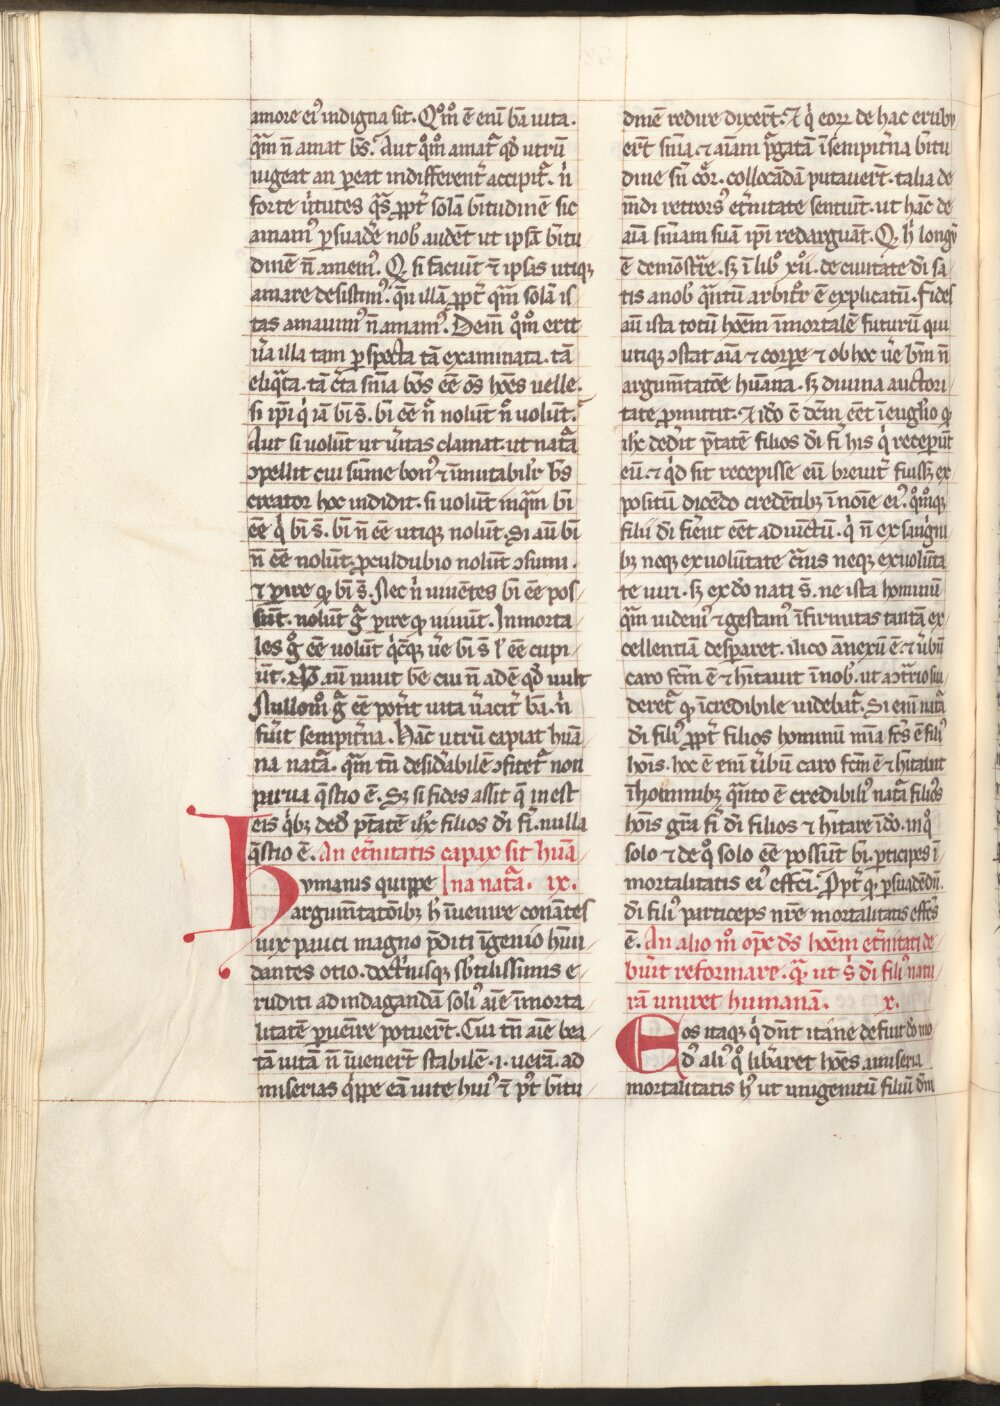 amore ei᷒ indigna sit. Qͦmͦ ē eni᷒ bā uita.
qͣm n̄ amat bs̄. Aut qͦmͦ amat᷑ qd̕ utrū
uigeat an ꝑeat indifferent᷑ accipit᷑. n̕
forte u᷒tutes qͣs ꝓpt᷑ solā b᷑titudinē sic
amam᷒ ꝑsuadē nob᷒ audēt ut ip̄sā b᷑titu
dinē n̄ amem᷒. Q᷒ si faciūt ē ip̄sas utiqꝫ
amare desistim᷒. qn̄ illā ꝓpt᷑ qͣm solā is
tas amauim᷒ n̄ amam᷒. Dein̄ qͦmͦ erit
u᷑a illa tam ꝑspecta tā examinata. tā
eliqͣta. tā c᷑ta sn̄ia b̄os ēē ōs hōes uelle.
si ip̄i q̇ iā bī s̄. bī ēē n᷑ nolūt n᷑ uolūt.
Aut si uolūt ut u᷑itas clamat. ut nat᷑a
ꝯpellit cui sūme bon᷒ ⁊ īmutabilit᷑ bs̄
creator hoc indidit. si uolūt inqͣm bī
ēē q̇ bī s̄. bī n̄ ēē utiqꝫ nolūt. Si aū bī
n̄ ēē nolūt. ꝓculdubio nolūt ꝯsumi.
⁊ ꝑire ꝙ bī s̄. Nec n̕ uiuētes bī ēē pos
sūt. nolūt gͣ ꝑire ꝙ uiuūt. Inmorta
les gͦ ēē uolūt q̇cūqꝫ ue᷑ bī s̄ l᷑ ēē cupi
ūt. Nō aū uiuit bē cui n̄ adē qd̕ uult
Nullomͦ gͣ ēē pot᷑it uita u᷑acit᷑ bā. n̕
fu᷑it sempit᷑na. Hāc utrū capiat huā
na nat᷑a. qͣm tn̄ desid᷑abilē ꝯfitet᷑ non
parua q̄stio ē. Sꝫ si fides assit q̄ inest
eis q̇bꝫ ded̕ ptātē ihc̄ filios dī fi᷑. nulla
q̄stio ē. An et᷑nitatis capax sit huā
Humanis quippe na nat᷑a. ix.
argum̄tatōibꝫ h̕ īuenire conātes
uix pauci magno p̄diti īgenio hūn
dantes otio. doct᷑inisqꝫ sb᷑tilissimis e
ruditi ad indagandā soli᷒ aīe īmorta
litatē ꝑuēire potuer̄t. Cui tn̄ aīe bea
tā uitā n̄ īuener̄t stabilē. i. ueră. ad
miserias q̇ppe eā uite hui᷒ ē p᷒t b᷑titu
dinē redire dixer̄t. Et q̇ eoꝝ de hac erubu
er̄t sn̄ia. ⁊ aīam p᷑gatā ī sempit᷑na b᷑titu
dine sn̄ cor᷑. collocādā putauer̄t. talia de
mūdi retrors᷒ et᷑nitate sentiūt. ut hāc de
aīa sn̄iam suā ip̄i redarguāt. Q᷒ h̕ longū
ē demōstr̄e. sꝫ ī lib᷒ xiiͦ. de ciuitate dī sa
tis a nob᷒ qͣntū arbitror᷑ ē explicatū. Fides
aū ista totū hoēm īmortalē futurū qui
utiqꝫ ꝯstat aīa ⁊ corꝑe ⁊ ob hoc ue᷑ bm̄ n̄
argum̄tatōē huāna. sꝫ diuina auctori
tate ꝓmittit. Et iō ē dc̄m ēēt ī eug̔lio ꝙ
ihc̄ ded᷑it ptātē filios dī fi᷑ his q̇ receꝑūt
eū. ⁊ qͥd sit recepisse eū breuit᷑ fuissꝫ ex
positū dicēdo credētibꝫ ī noīe ei᷒. qͦmͦqꝫ
filii dī fie᷑nt ēēt adiūctū. q̇ n̄ ex sang̔ni
bꝫ neqꝫ ex uolūtate car̄nis neqꝫ ex uolūta
te uiri. sꝫ ex dō nati s̄. ne ista hominū
qͣm uidem᷒ ⁊ gestam᷒ īfirmitas tantā ex
cellentiā desꝑaret. ilico ānexū ē. ⁊ u᷑bū
caro fc̄m ē ⁊ hītauit ī nob᷒. ut a ꝯt᷑rio sua
deret᷑ ꝙ īcredibile uidebat᷑. Si eni᷒ nat᷑a
dī fili᷒ ꝓpt᷑ filios hominū mīa fc̄s ē fili᷒
hoīs. hoc ē em̄ u᷑bū caro fc̄m ē ⁊ hītauit
ī hoīnibꝫ. qͣnto ē credibili᷒ nat᷑a filios
hoīs gr̄a fi᷑ dī filios ⁊ hītare ī dō. in qͦ
solo ⁊ de qͦ solo ēē possūt bī. ꝑticipes ī
mortalitatis ei᷒ effc̄i. Ꝓpt᷑ ꝙ ꝑsuadēdū.
dī fili᷒ particeps nr̄e mortalitatis effc̄s
ē. An alio mͦ oꝑe ds̄ hoēm et᷑nitati de
bu᷑it reformare. qͣ ut s̕ dī fili᷒ natu
rā uniret humanā. x.
Eos itaqꝫ q̇ dn̄t itāne defuit dō mo
d᷒ ali᷒ qͦ lib᷑aret hoēs a miseria
mortalitatis h᷒ ut unigenitū filiū dm̄